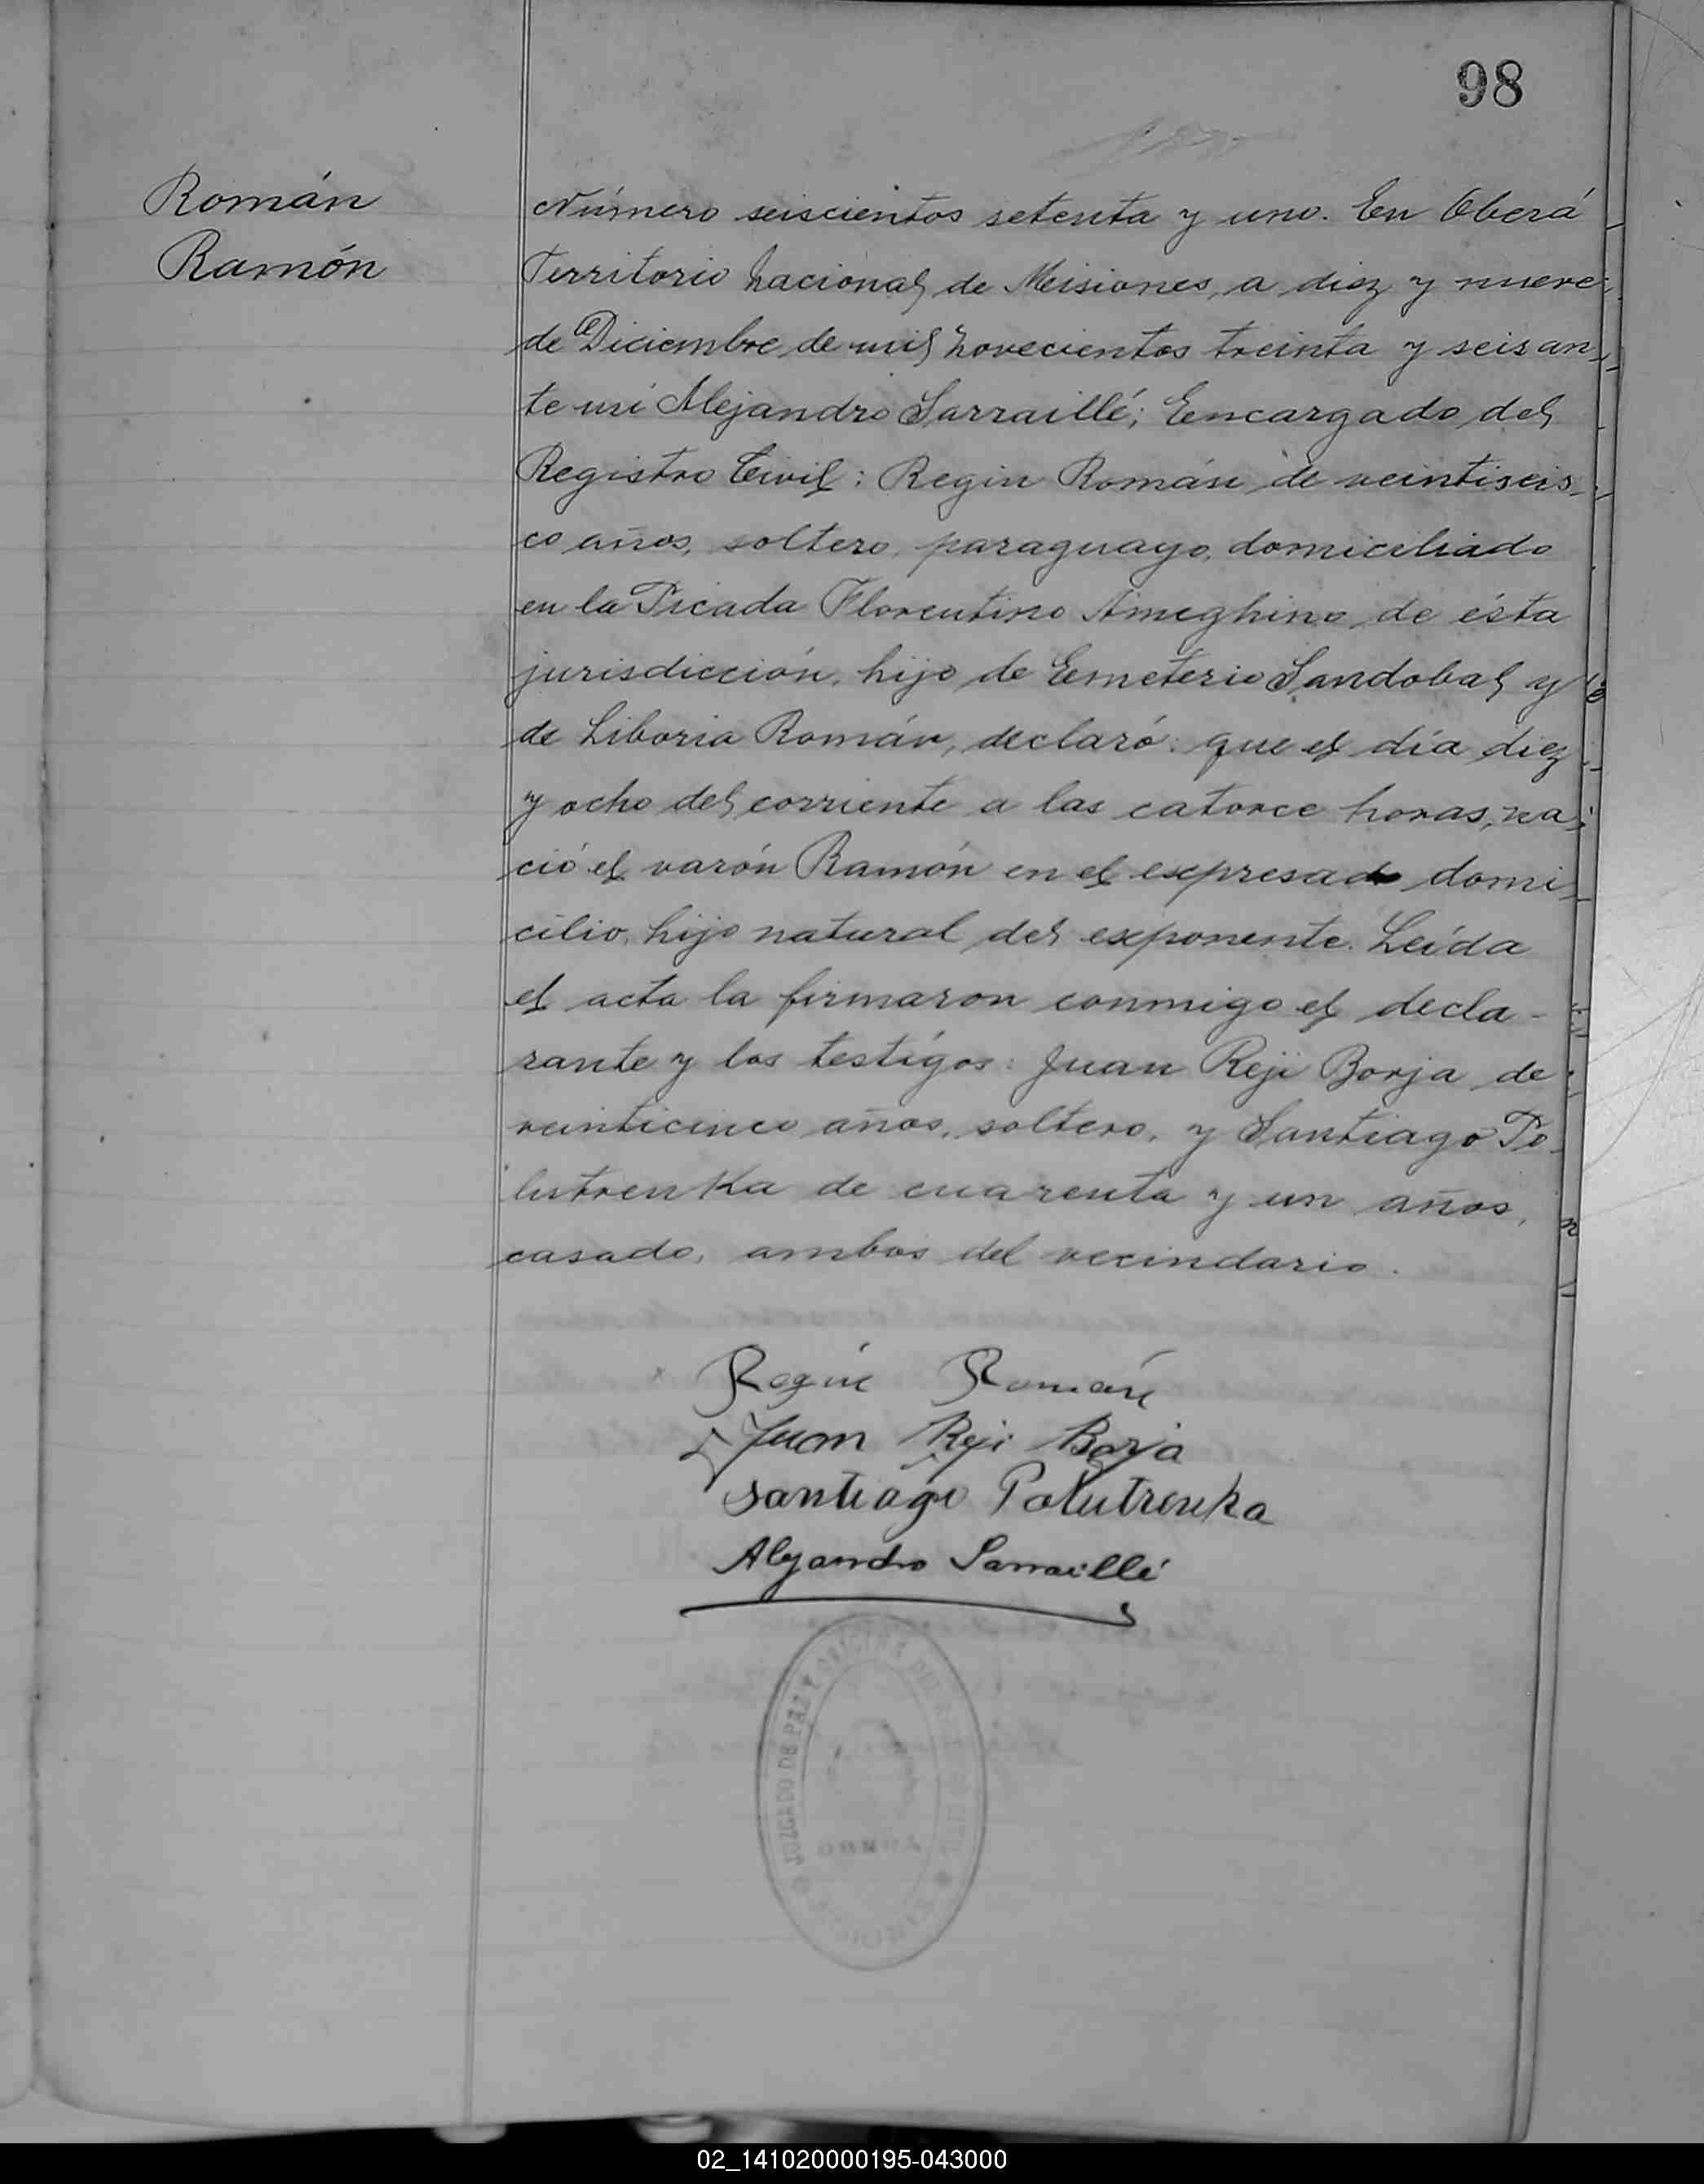 98
Román
Ramón
Número seiscientos setenta y uno. En Oberá
Territorio Nacional de Misiones, a diez y nueve
de Diciembre de mil novecientos treinta y seis an
te mi Alejandro Sarraillé; Encargado del
Registro Civil: Regin Román de veintiseis
co años, soltero, paraguayo, domiciliado
en la Picada Florentino Ameghino de ésta
jurisdicción, hijo de Emeterio Sandobal y
de Liboria Román, declaró: que el día diez
y ocho del corriente a las catorce horas, na
ció el varón Ramón en el expresado domi
cilio, hijo natural del exponente. Leída
el acta la firmaron conmigo el decla-
rante y los testigos: Juan Reji Borja de
veinticinco años, soltero, y Santiago Po
lutrenka de cuarenta y un años,
casado, ambos del vecindario.
Regin Román
Juan Reji Borja
Santiago Polutrenka
Alejandro Sarraillé
JUZGADO DE PAZ Y OFICINA DE
02_141020000195-043000